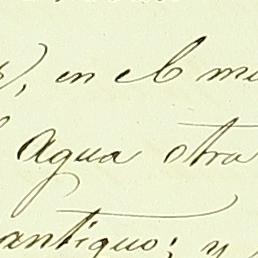 , en el me
Agua otra
antiguo; y